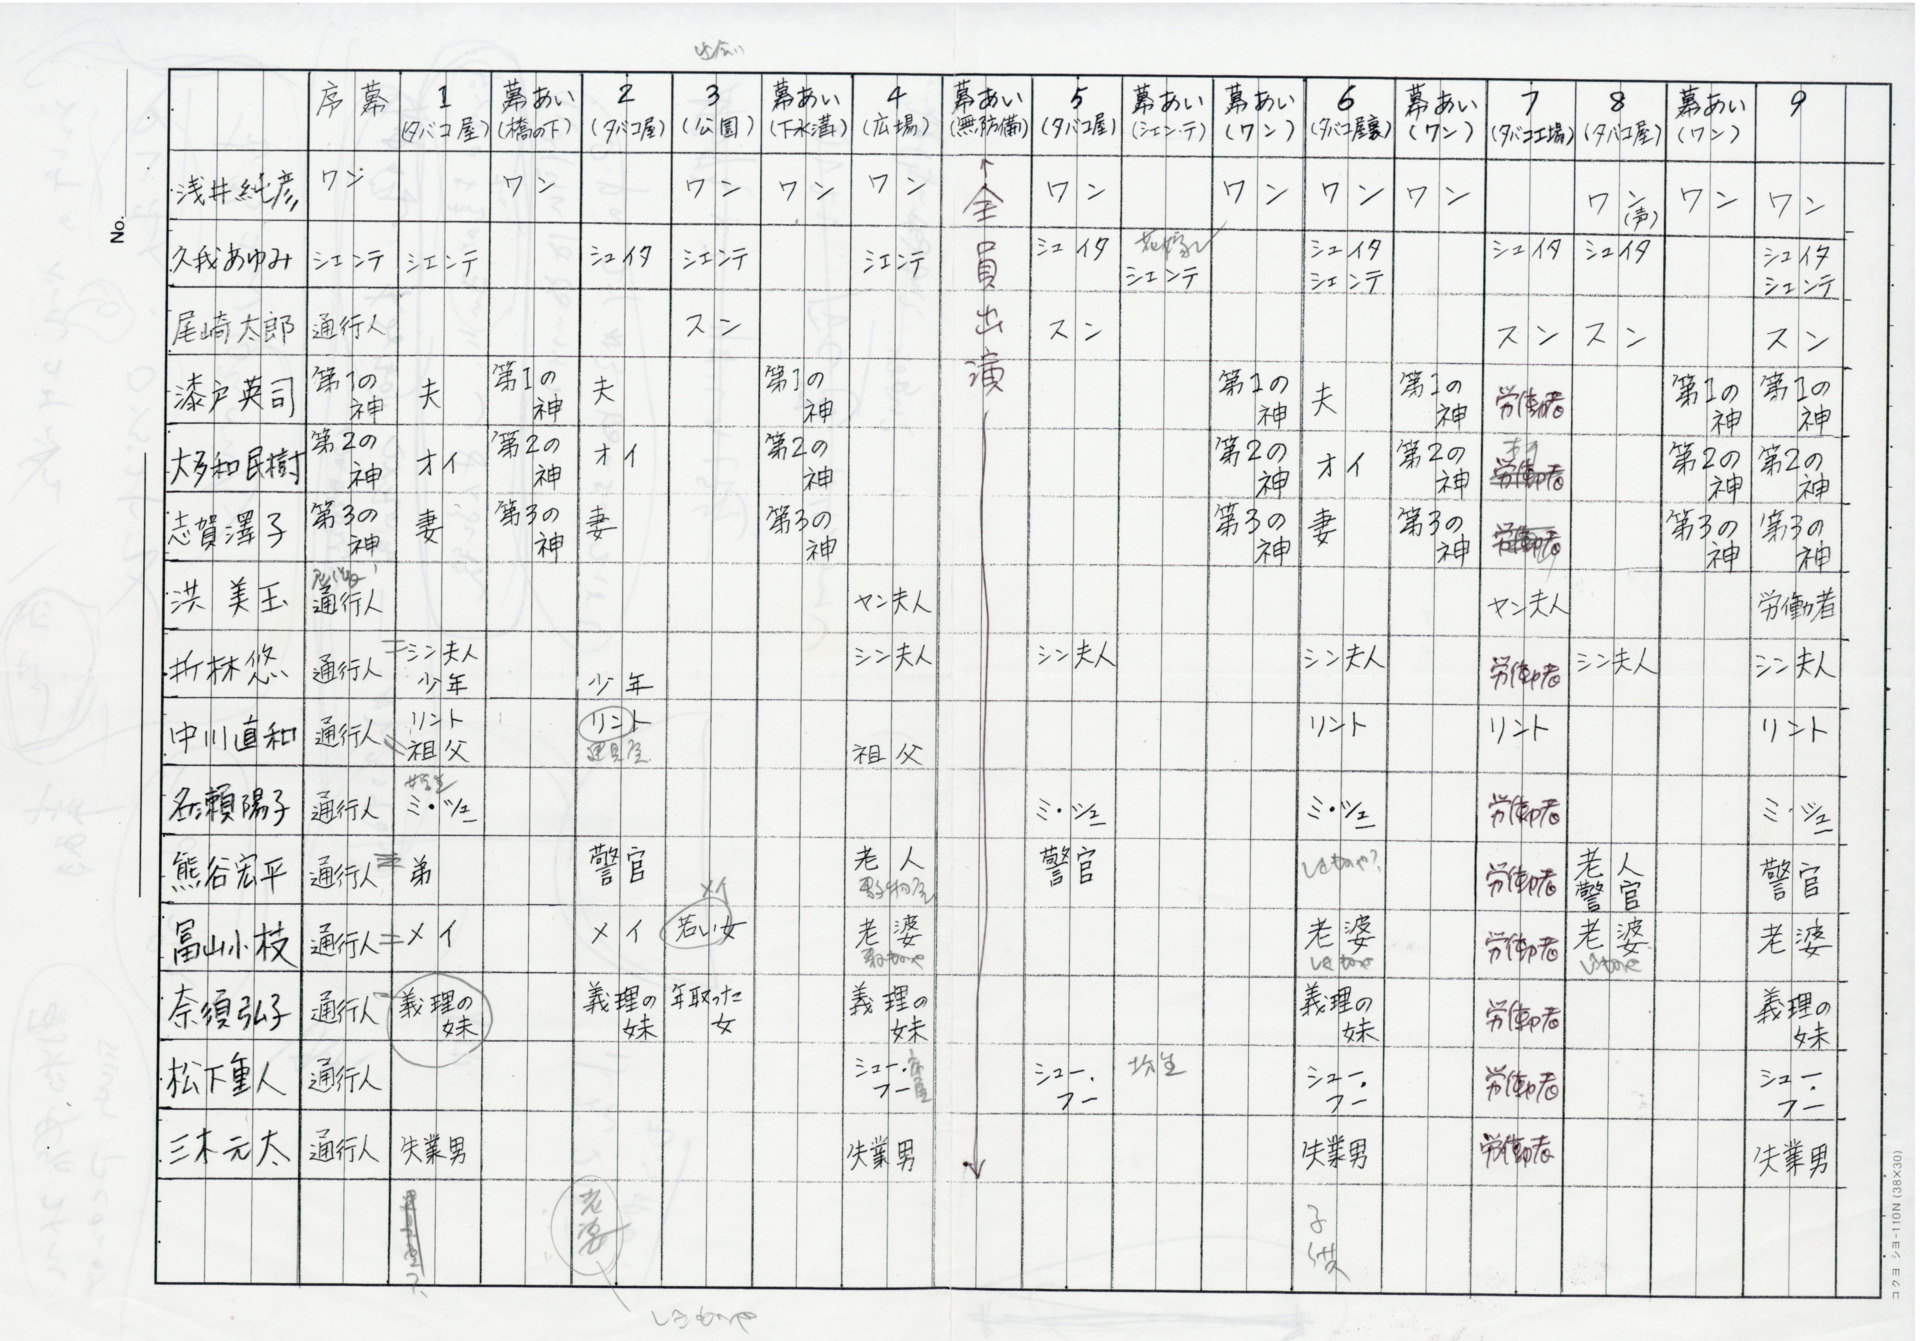 序幕 1 幕あい 2 3 幕あい 4 幕あい 5 幕あい 幕あい 6 幕あい 7 8 幕あい 9
(タバコ屋) (橋の下) (タバコ屋) (公園) (下水溝) (広場) (無防備) (タバコ屋) (シェンテ) (ワン) (タバコ屋裏) (ワン) (タバコ工場) (タバコ屋) (ワン)
No.
浅井純彦 ワン ワン ワン ワン ワン ワン ワン ワン ワン ワン ワン ワン
(声)
←全員出演→
久我あゆみ シェンテ シェンテ シュイタ シェンテ シェンテ シュイタ シェンテ シュイタ シュイタ シュイタ シュイタ
シェンテ シェンテ
尾崎太郎 通行人 スン スン スン スン スン
漆戸英司 第1の 夫 第1の 夫 第1の 第1の 夫 第1の 労働者 第1の 第1の
神 神 神 神 神 神 神
大多和民樹 第2の オイ 第2の オイ 第2の 第2の オイ 第2の 労働者 第2の 第2の
神 神 神 神 神 神 神
志賀澤子 第3の 妻 第3の 妻 第3の 第3の 妻 第3の 労働者 第3の 第3の
神 神 神 神 神 神 神
洪美玉 通行人 ヤン夫人 ヤン夫人 労働者
折林悠 通行人 シン夫人 シン夫人 シン夫人 シン夫人 労働者 シン夫人 シン夫人
少年 少年
中川直和 通行人 リント リント リント リント リント
祖父 道具屋 祖父
名瀬陽子 通行人 ミ・ヅュ ミ・ヅュ ミ・ヅュ 労働者 ミ・ヅュ
熊谷宏平 通行人 弟 警官 老人 警官 労働者 老人 警官
警官
メイ
冨山小枝 通行人 メイ メイ 若い女 老婆 老婆 労働者 老婆 老婆
奈須弘子 通行人 義理の 義理の 年取った 義理の 義理の 労働者 義理の
妹 妹 女 妹 妹 妹
松下重人 通行人 シュー・ シュー・ シュー・ 労働者 シュー・
フー フー フー フー
三木元太 通行人 失業男 失業男 失業男 労働者 失業男
老婆
子供
コクヨ シヨ-110N (38×30)